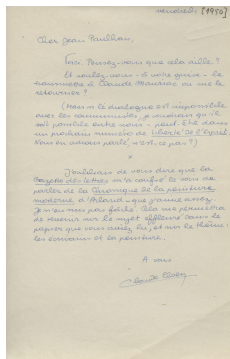 vendredi [1950]
Cher Jean Paulhan,
Voici. Pensez-vous que cela aille ?
Et voulez-vous - à votre guise - le
transmettre à Claude Mauriac ou me le
retourner ?
(Non : le dialogue est impossible
avec les communistes, je voudrais qu'il
soit possible entre nous - peut-être dans
un prochain numéro de Liberté de l'Esprit.
Nous en avions parlé, n'est-ce pas ?)
x
J'oubliais de vous dire que la
Gazette des lettres m'a confié le soin de
parler de la
moderne à
Je n'en suis pas fâché. Cela me permettra
de revenir sur le sujet effleuré dans le
papier que vous avez lu, et sur le thème
les écrivains et la peinture.
A vous